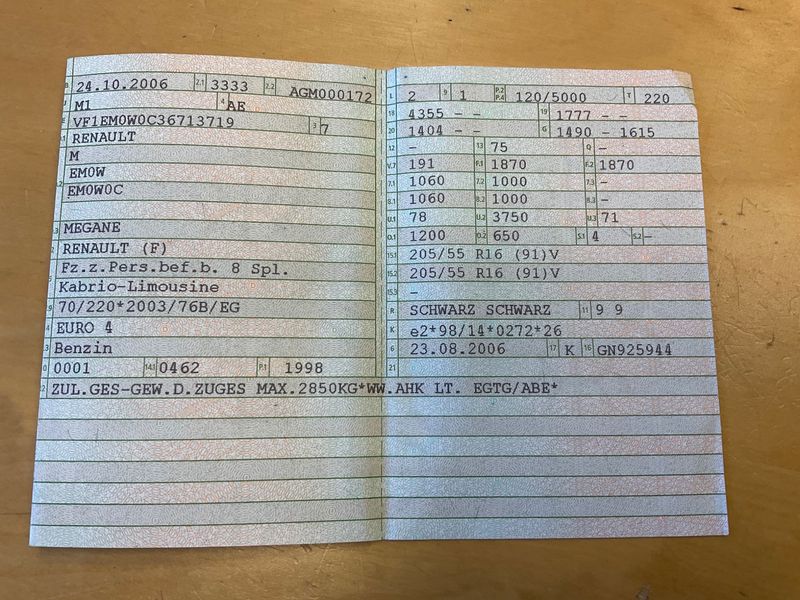 B 24.10.2006 2.1 3333 2.2 AGM000172
J M1 4 AE
VF1EM0W0C36713719 3 7
RENAULT
M
EM0W
EM0W0C
MEGANE
RENAULT (F)
Fz.z.Pers.bef.b. 8 Spl.
Kabrio-Limousine
70/220*2003/76B/EG
EURO 4
Benzin
0001 14.1 0462 P.1 1998
ZUL.GES-GEW.D.ZUGES MAX.2850KG*WW.AHK LT. EGTG/ABE*
L 2 9 1 P.2 P.4 120/5000 T 220
18 4355 - - 19 1777 - -
20 1404 - - G 1490 - 1615
12 - 13 75 Q -
V.7 191 F.1 1870 F.2 1870
7.1 1060 7.2 1000 7.3 -
8.1 1060 8.2 1000 8.3 -
U.1 78 U.2 3750 U.3 71
O.1 1200 O.2 650 S.1 4 S.2 -
15.1 205/55 R16 (91)V
15.2 205/55 R16 (91)V
15.3 -
R SCHWARZ SCHWARZ 11 9 9
K e2*98/14*0272*26
6 23.08.2006 17 K 16 GN925944
21